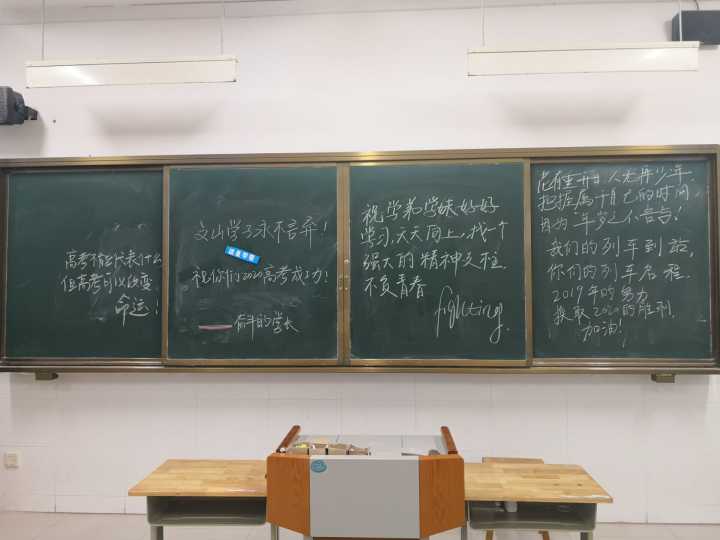 高考不能代表什么
但高考可以改变
命运!
文山学子永不言弃!
祝你们2020高考成功!
——奋斗的学长
祝学弟学妹好好
学习,天天向上,找一个
强大的精神支柱.
不负青春
fighting.
花有重开日,人无再少年.
把握属于自己的时间
因为年岁
我们的列车到站,
你们的列车启程.
2019年的努力
换取2020的胜利.
加油!